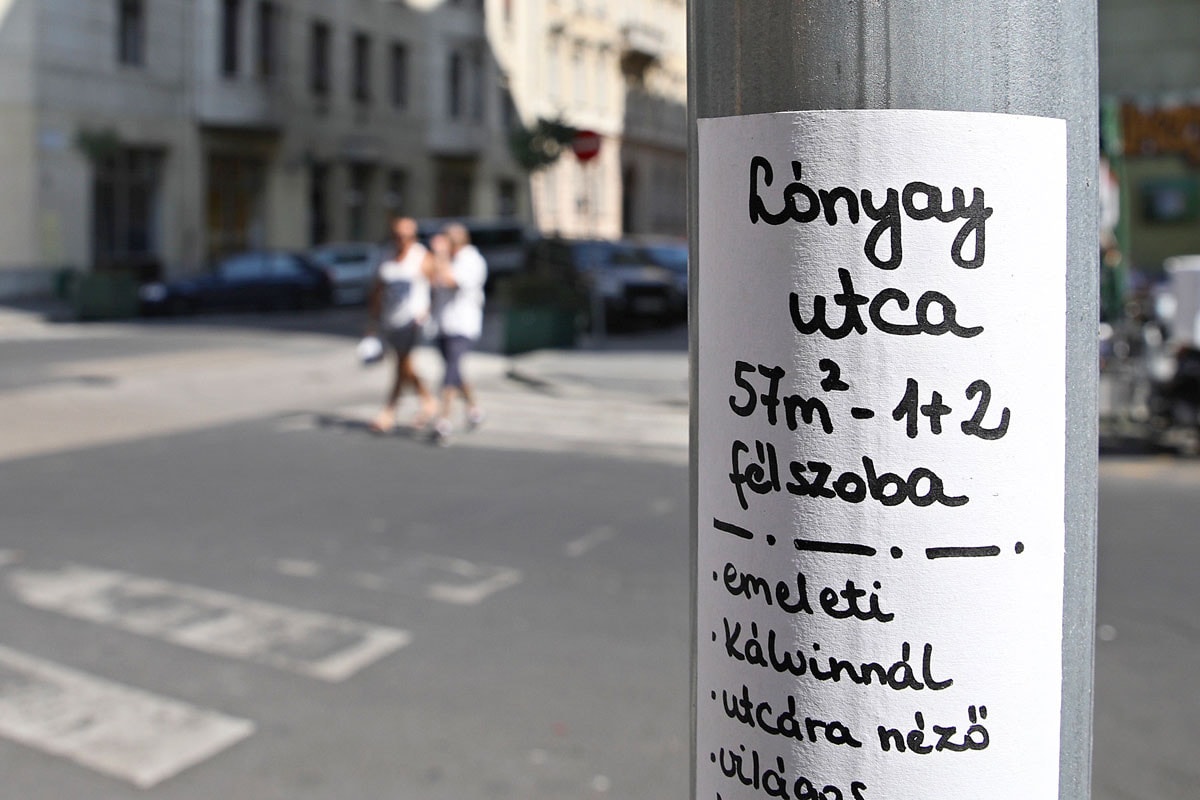 Lónyay
utca
57m² - 1+2
félszoba
• emeleti
• Kálvinnál
• utcára néző
• világos